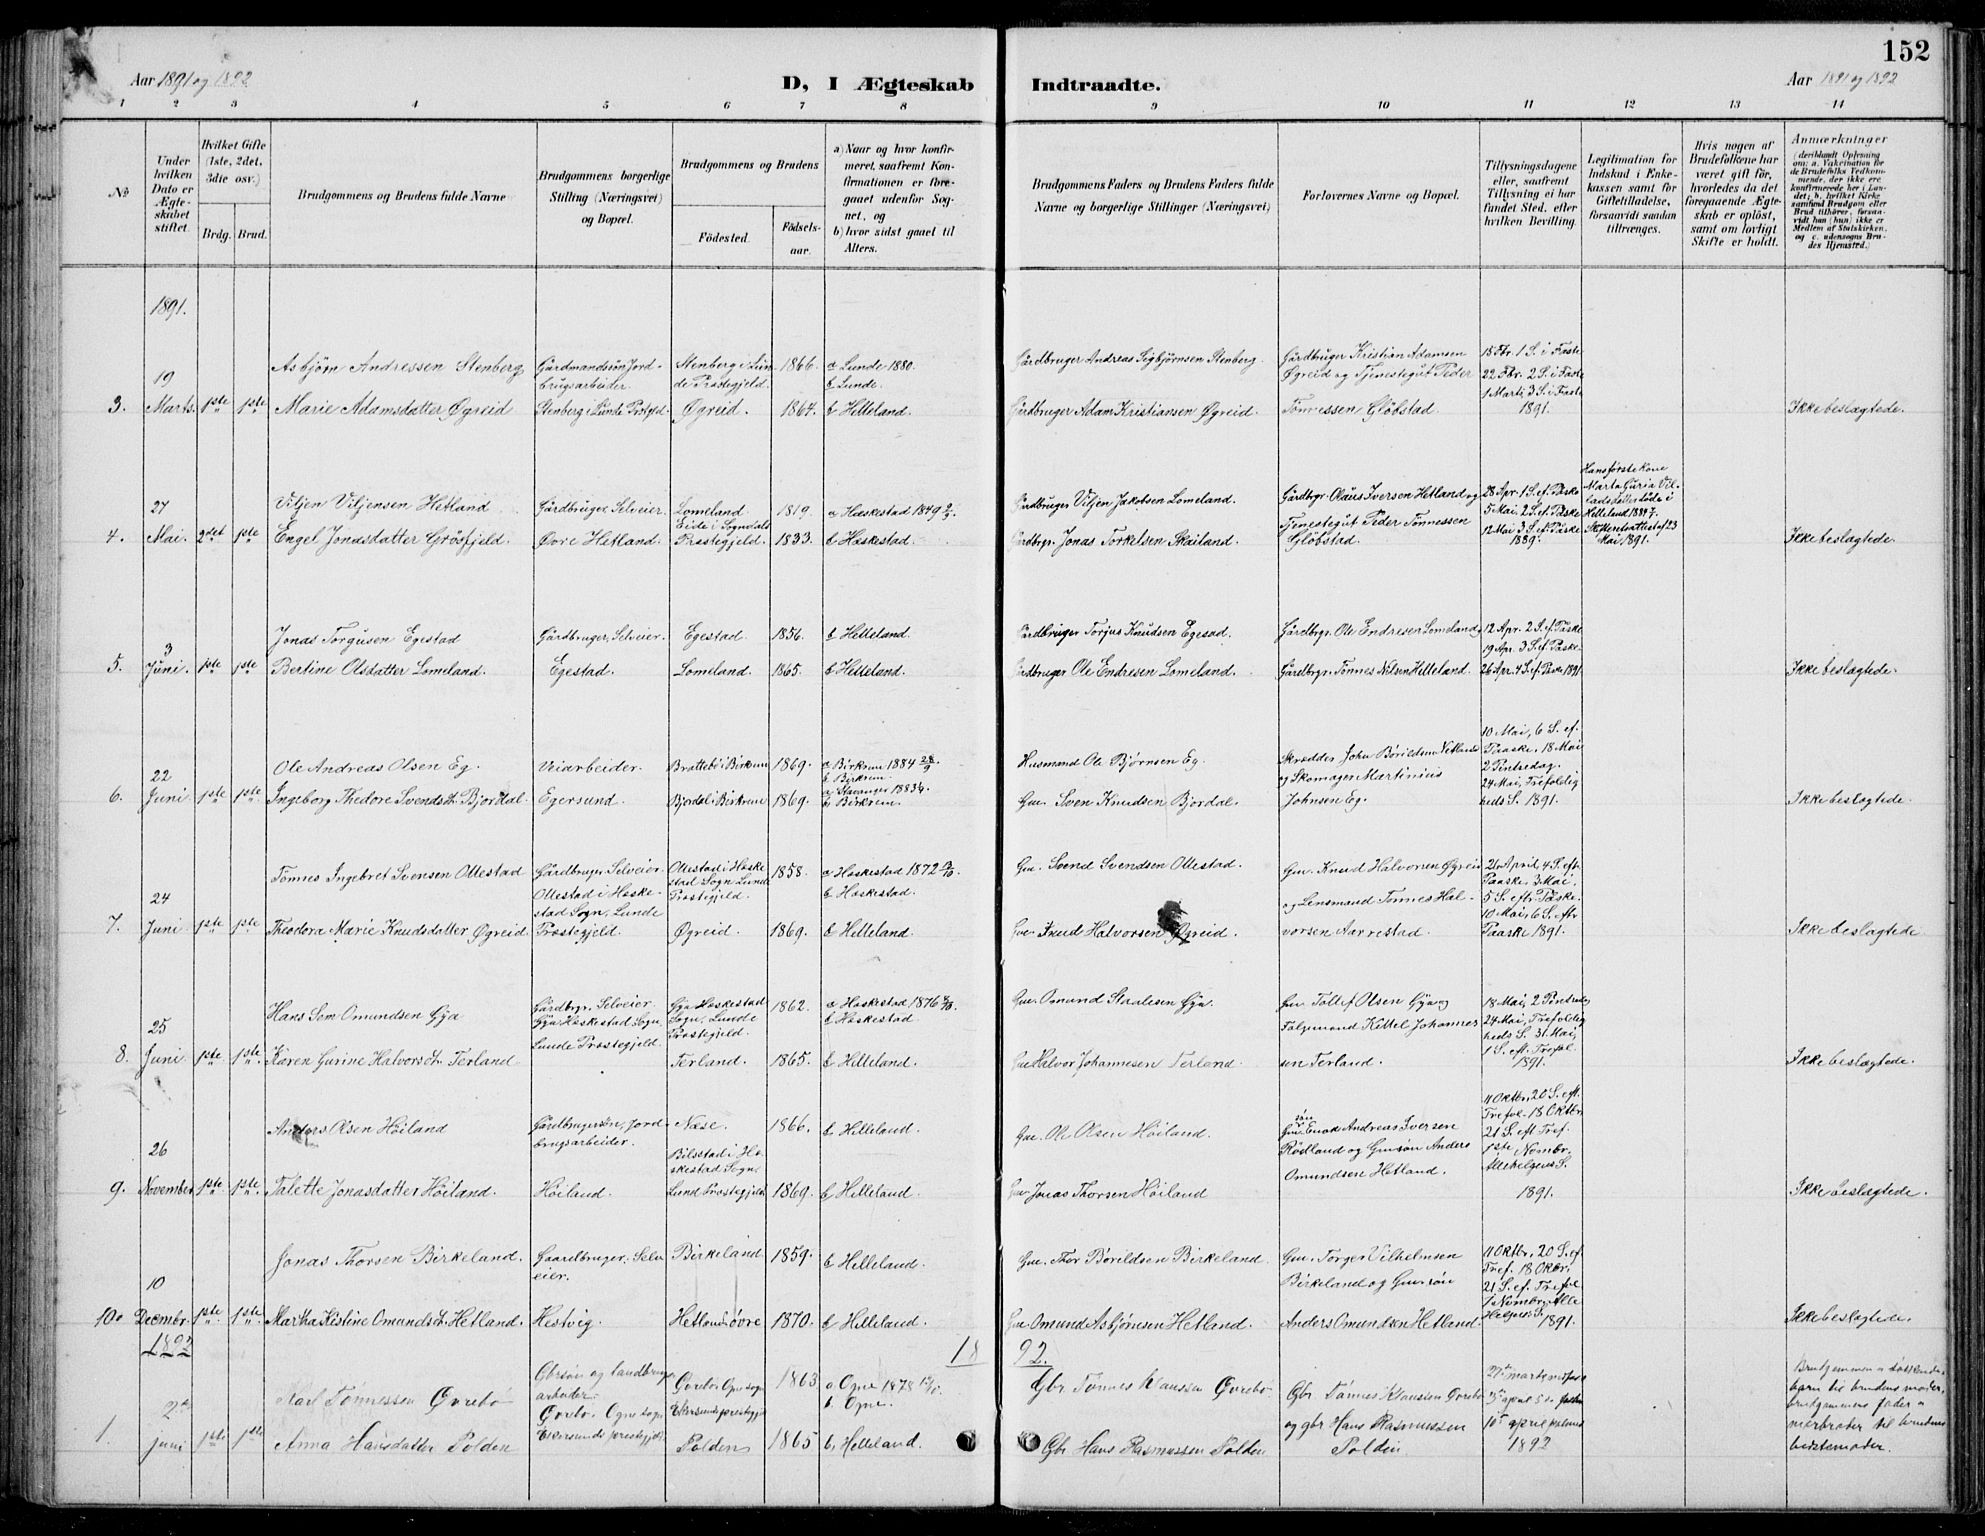 152
Aar 1891 og 1892
D, I Ægteskab Indtraadte.
Aar 1891 og 1892
1 2 3 4 5 6 7 8 9 10 11 12 13 14
No
Under hvilken Dato er Ægteskabet stiftet.
Hvilket Gifte (1ste, 2det, 3die osv.)
Brdg. Brud.
Brudgommens og Brudens fulde Navne
Brudgommens borgerlige Stilling (Næringsvei) og Bopæl.
Brudgommens og Brudens
Födested.
Födsels-aar.
a) Naar og hvor konfirmeret, saafremt Konfirmationen er foregaaet udenfor Sognet, og
b) hvor sidst gaaet til Alters.
Brudgommens Faders og Brudens Faders fulde Navne og borgerlige Stillinger (Næringsvei)
Forlovernes Navne og Bopæl.
Tillysningsdagene eller, saafremt Tillysning ei har fundet Sted, efter hvilken Bevilling.
Legitimation for Indskud i Enkekassen samt for Giftetilladelse, forsaavidt saadan tiltrænges.
Hvis nogen af Brudefolkene har været gift för, hvorledes da det foregaaende Ægteskab er oplöst, samt om lovligt Skifte er holdt.
Anmærkninger
(deriblandt Oplysning om: a. Vakcination for de Brudefolks Vedkommende, der ikke ere konfirmerede her i Landet; b. hvilket Kirkesamfund Brudgom eller Brud tilhörer, forsaavidt han (hun) ikke er Medlem af Statskirken, og c. udensogns Brudes Hjemsted.)
1891.
3. 19 Marts. 1ste 1ste
Asbjørn Andressen Stenberg
Marie Adamsdatter Øgreid
Gårdmandssøn Jordbrugsarbeider.
Stenberg i Lunde Prstgjld
Stenberg i Lunde Prøstegjeld. 1866.
Øgreid. 1864.
a Lunde 1880.
b Lunde.
b Helleland.
Gårdbruger Andreas Sigbjørnsen Stenberg.
Gårdbruger Adam Kristiansen Øgreid.
Gårdbruger Kristian Adamsen
Øgreid og Tjenestegut Peder
Tønnessen Gløbstad.
15 Fbr. 1 S. i Faste
22 Fbr. 2 S. i Faste
1 Marti, 3 S. i Faste
1891.
Ikke beslægtede.
4. 27 Mai. 2det 1ste
Viljen Viljensen Hetland
Engel Jonasdatter Grøsfjeld.
Gårdbruger, Selveier.
Øvre Hetland.
Lomeland 1819.
Eide i Sogndals Prøstegjeld. 1833.
a Heskestad 1849
b Heskestad.
Gårdbruger Viljen Jakobsen Lomeland.
Gårdbrgr. Jonas Torkelsen Skailand.
Gårdbrgr. Olaus Iversen Hetland og
Tjenestegut Peder Tønnessen
Gløbstad.
28 Apr. 1 S. ef. Påske
5 Mai, 2 S. ef. Påske
12 Mai 3 S. ef. Påske
1889.
Hans første Kone
Marta Guria Vilbadsdatter døde i
Helleland
Skifteattest af 23
Mai 1891.
Ikke beslægtede.
5. 3 Juni. 1ste 1ste
Jonas Torgusen Egestad
Bertine Olsdatter Lomeland.
Gårdbruger, Selveier.
Egestad.
Egestad. 1856.
Lomeland. 1865.
b Helleland.
b Helleland.
Gårdbruger Torjus Knudsen Egesad.
Gårdbruger Ole Endresen Lomeland.
Gårdbrgr. Ole Endresen Lomeland,
Gårdbrgr. Tønnes Nilsen Helleland.
12 Apr. 2 S. ef. Påske
19 Apr. 3 S. ef. Påske.
26 Apr. 4 S. ef. Påske 1891.
Ikke beslægtede.
6. 22 Juni 1ste 1ste
Ole Andreas Olsen Eg.
Ingeborg Thedore Svendsdt. Bjordal.
Veiarbeider.
Egersund.
Brattebø i Birkrem 1869.
Bjordal i Birkrem 1869.
a Birkrem 1884 28/9.
b Birkrem.
a Stavanger 1883
b Birkrem.
Husmand Ole Bjørnsen Eg.
Gm. Sven Knudsen Bjordal.
Skrædder John Børildsen Netland
og Skomager Martinius
Johnsen Eg.
10 Mai, 6 S. ef.
Paaske, 18 Mai
2 Pintsedag.
24 Mai, Trefoldigheds S. 1891.
Ikke beslægtede.
7. 24 Juni 1ste 1ste
Tønnes Ingebret Svensen Ollestad
Theodora Marie Knudsdatter Øgreid
Gårdbruger, Selveier
Ollestad i Heskestad Sogn, Lunde
Prøstegjeld.
Ollestad i Heskestad Sogn Lunde
Prøstegjeld. 1858.
Øgreid. 1869.
a Heskestad 1872
b Heskestad.
b Helleland.
Gm. Svend Svendsen Ollestad.
Gm. Knud Halvorsen Øgreid.
Gm. Knud Halvorsen Øgreid
og Lensmand Tønnes Halvorsen Aarrestad.
26 April, 4 S. eftr.
Paaske, 3 Mai,
5 S. eftr. Påske.
10 Mai, 6 S. eftr.
Paaske 1891.
Ikke beslægtede
8. 25 Juni 1ste 1ste
Hans Sem Omundsen Gya
Karen Gurine Halvorsdt. Terland
Gårdbrgr. Selveier.
Gya Heskestad Sogn,
Lunde Prøstegjeld.
Gya Heskestad
Sogn, Lunde
Prøstegjeld. 1862.
Terland. 1865.
a Heskestad 1876
b Heskestad
b Helleland.
Gm. Omund Staalesen Gya.
Gm. Halvor Johannesen Terland.
Gm. Tollef Olsen Gya og
Følgemand Kittel Johannessen Terland.
18 Mai, 2 Pintsedag
24 Mai, Trefoldigheds S. 31 Mai,
1 S. eft. Trefol.
1891.
Ikke beslægtede.
9. 26 November 1ste 1ste
Anders Olsen Høiland
Talette Jonasdatter Høiland.
Gårdbrugersøn, Jordbrugsarbeider.
Høiland.
Næse. 1866.
Bilstad i Heskestad Sogn,
Lund Prøstegjeld 1869.
b Helleland.
b Helleland.
Gm. Ole Olsen Høiland.
Gm. Jonas Thorsen Høiland
Gmsøn Enok Andreas Iversen
Rødland og Gmsøn Anders
Omundsen Hetland.
11 Oktbr, 20 S. eft.
Trefol. 18 Oktbr
21 S. eft Tref.
1ste Novmbr,
Allehelgens S.
1891.
Ikke beslægtede.
10. 10 Decmbr. 1ste 1ste
Jonas Thorsen Birkeland.
Martha Kistine Omundsdt. Hetland.
Gaardbruger, Selveier.
Hestvig.
Birkeland 1859.
Hetland øvre 1870.
b Helleland.
b Helleland.
Gm. Thor Børildsen Birkeland
Gm Omund Asbjørnsen Hetland.
Gm. Torger Vilhelmsen
Birkeland og Gmsøn
Anders Omundsen Hetland
11 Oktbr, 20 S. ef
Tref. 18 Oktbr.
21 S. ef. Trefol
1 Novmbr, Alle
Helgens S.
1891.
Ikke beslægtede.
1892
1892.
1. 2den juni 1ste 1ste
Karl Tønnessen Øvrebø
Anna Hansdatter Polden
Gbrsøn og landbrugsarbeider.
Øvrebø. Ogne sogn
Ekersunds prestegjeld.
Øvrebø, Ogne sogn
Ekersunds prestegjeld 1863
Polden 1865
a. Ogne 1878
b. Ogne.
b, Helleland.
Gbr. Tønnes Klaussen Øvrebø
Gbr. Hans Rasmussen Polden
Gbr Tønnes Klaussen Øvrebø
og gbr Hans Rasmussen
Polden.
27de marts midfaste
3die april 5 i fasten
10de april palmes
1892
Brudgommen er søskendebarn til brudens moder,
brudgommens fader er
morbroder til brudens
bestemoder.